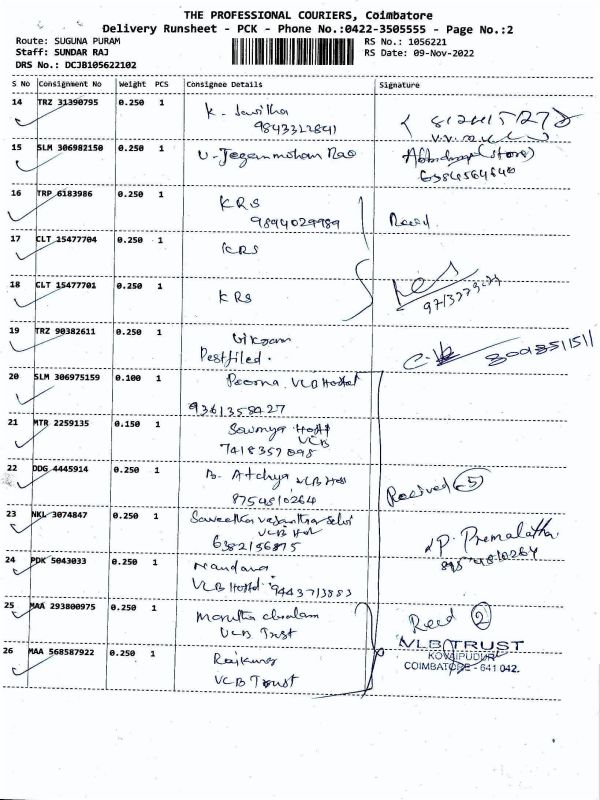 THE PROFESSIONAL COURIERS, Coimbatore
Delivery Runsheet - PCK - Phone No.:0422-3505555 - Page No.:2
Route: SUGUNA PURAM
RS No.: 1056221
Staff: SUNDAR RAJ
RS Date: 09-Nov-2022
DRS No.: DCJB105622102
S No Consignment No Weight PCS Consignee Details Signature
14 TRZ 31390795 0.250 1
15 SLM 306982150 0.250 1 U. Jeganmohan Rao
16 TRP 6183986 0.250 1 KRS
9894029989
17 CLT 15477704 0.250 1 KRS
18 CLT 15477701 0.250 1 KRS
19 TRZ 90382611 0.250 1 Vikram
20 SLM 306975159 0.100 1 Poorna VLB Hostel
9361358427
21 MTR 2259135 0.150 1 Sowmya
VLB
22 DDG 4445914 0.250 1 VLB
8754810264
Received 5
23 NKL 3074847 0.250 1
VLB
6382156875
P. Premalatha
24 PDK 5043033 0.250 1 Nandana
VLB Hostel 9443713883
25 MAA 293800975 0.250 1
VLB Trust
Recd 2
26 MAA 568587922 0.250 1 Rajkumar
VLB Trust
VLB TRUST
KOVAIPUDUR
COIMBATORE - 641 042.